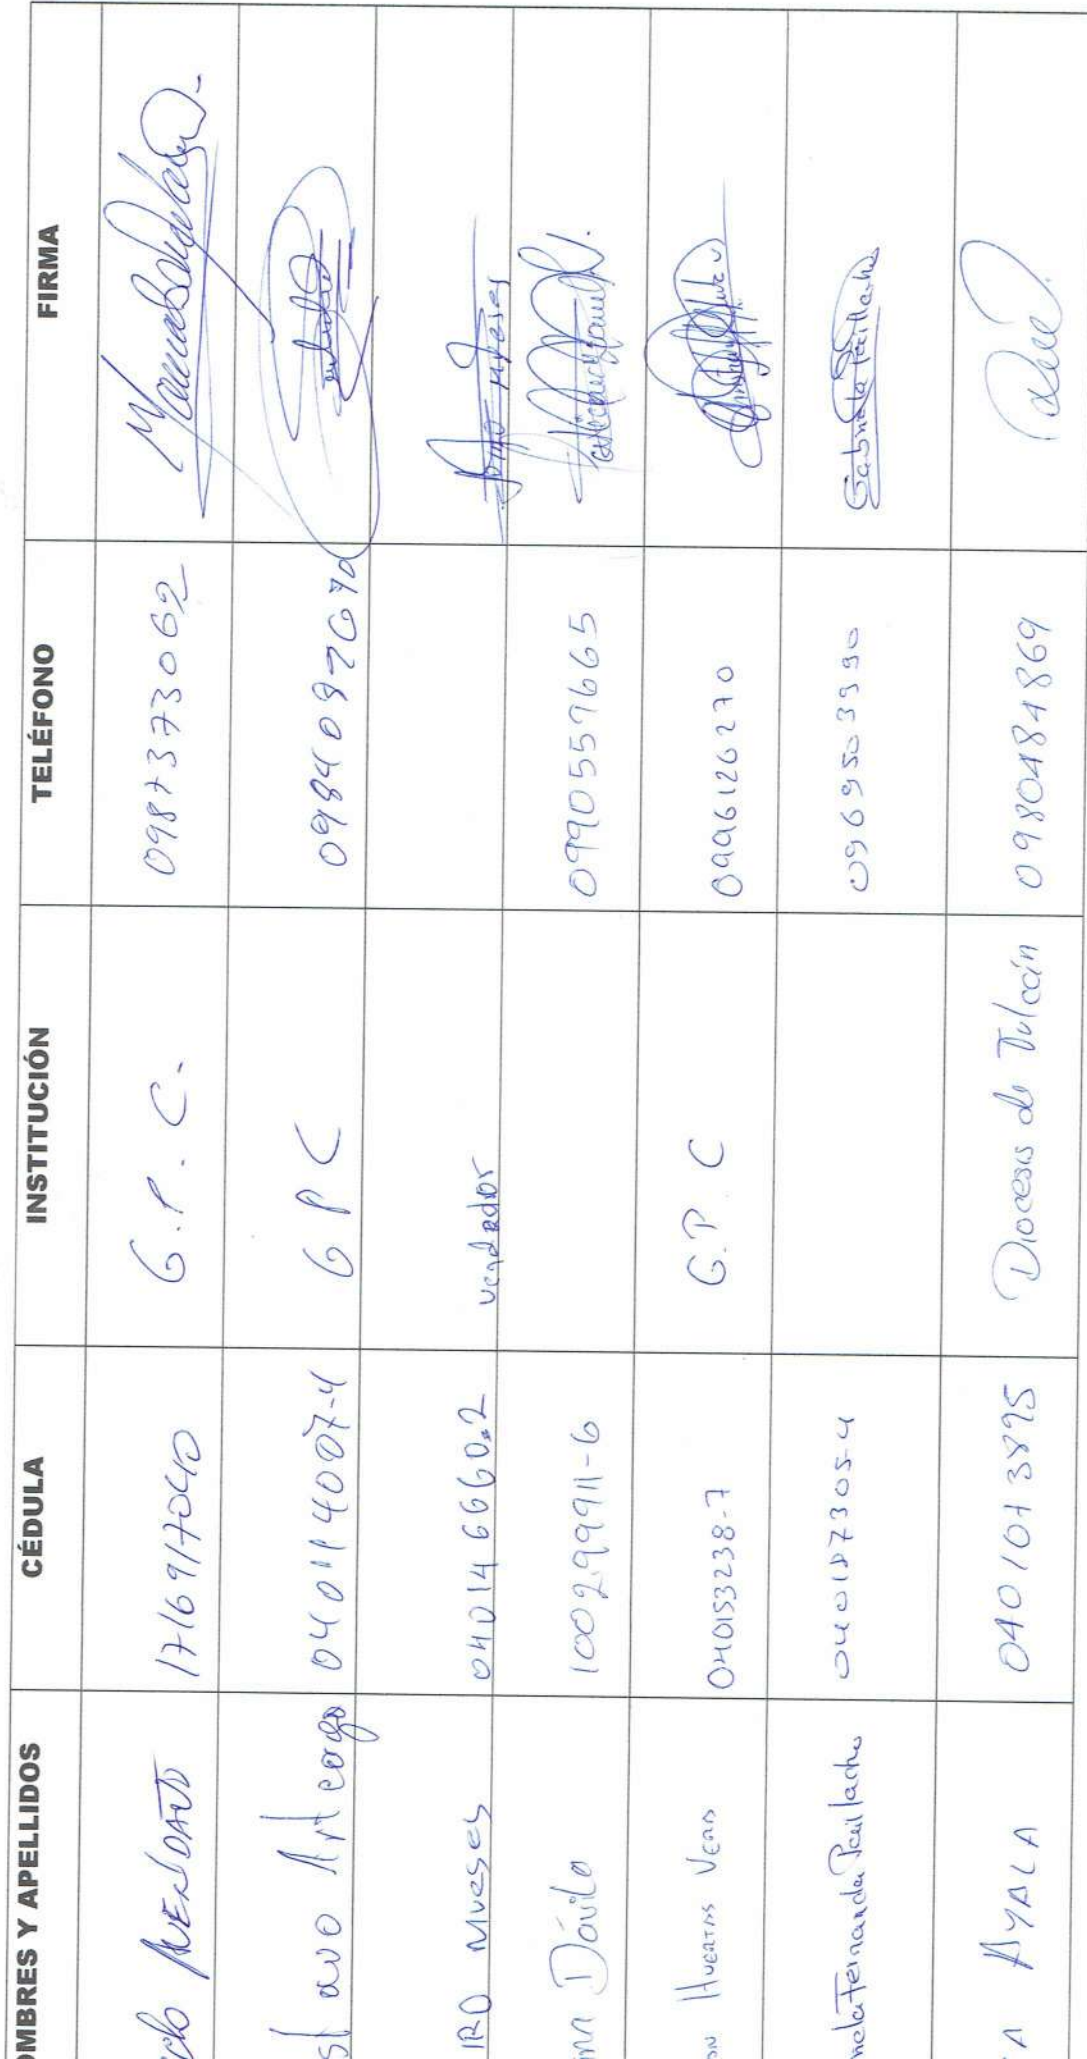 OMBRES Y APELLIDOS CÉDULA INSTITUCIÓN TELÉFONO FIRMA
AVENDAÑO 1716917040 G.P.C.- 0987373062
avo Arteaga 040114007-4 GPC
IRO Mueses 040146660.2 vendador
Dávila 100299911-6 0990557665
ON Huertas Vera 040153238-7 G.P.C 0996126270
nela Fernanda Paillacho 040187305-4 0969503990 Gabriela Paillacho
A AYALA 0401013895 Diocesis de Tulcán 0980484869